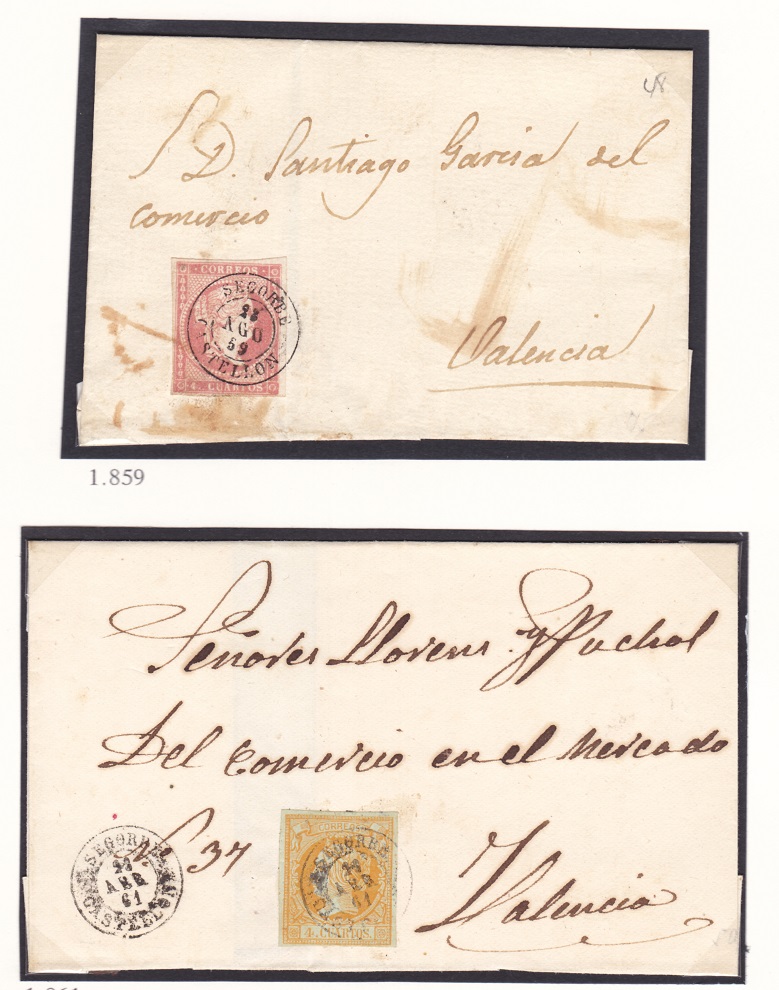 48
S D. Santiago Garcia del
comercio
· CORREOS ·
SEGORBE
23
AGO
59
STELLON
4. CUARTOS
Valencia
1.859
Señores Llorens y Puchol
Del Comercio en el Mercado
Nº 34
CORREOS
SEGORBE
ABR
61
4. CUARTOS
SEGORBE
ABR
61
CASTELLON
Valencia